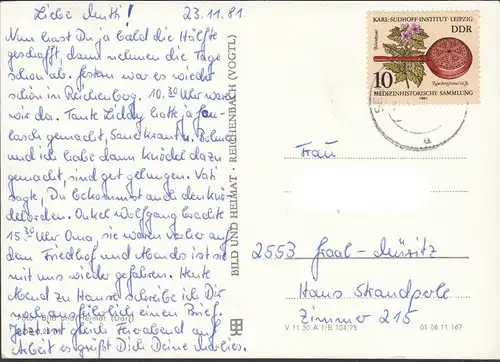 Liebe Mutti!
23.11.81
Nun hast Du ja bald die Hälfte
geschafft, dann nehmen die Tage
schon ab. Gestern war es wieder
schön in Reichenbg. 10.30 Uhr waren
wir da. Tante Liddy hatte ja Gu-
lasch gemacht, Sauerkraut, Bohnen
und ich habe dann Knödel dazu
gemacht, sind gut gelungen. Vati
sagte, Du bekommst auch den Knö-
delorden. Onkel Wolfgang brachte
15.30 Uhr Oma, sie waren vorher auf
dem Friedhof und Abends ist sie
mit uns wieder gefahren. Heute
Abend zu Hause schreibe ich Dir
noch ausführlich einen Brief.
Jetzt ist gleich Feierabend auf
Arbeit es grüßt Dich Deine
BILD UND HEIMAT · REICHENBACH (VOGTL)
KARL-SUDHOFF-INSTITUT LEIPZIG
DDR
10
MEDIZINHISTORISCHE SAMMLUNG
1981
Frau
2553 Graal-Müritz
Haus Strandperle
Zimmer 215
V 11 50 A 1/B 104/75
01 06 11 167